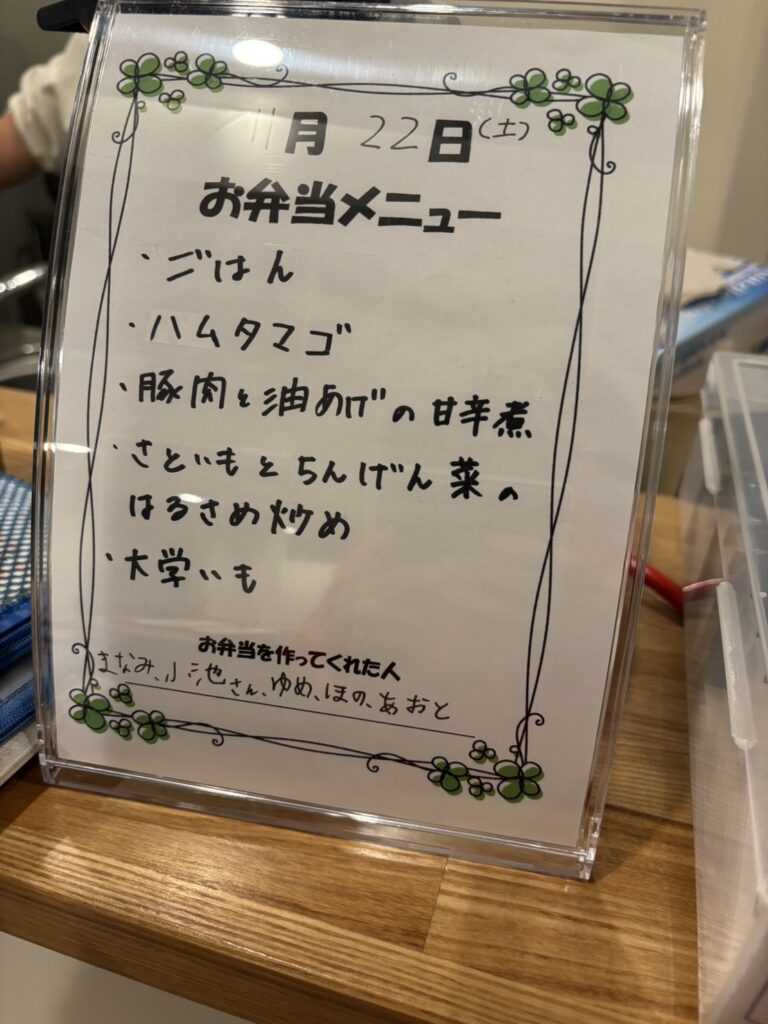 11月 22日(土)
お弁当メニュー
・ごはん
・ハムタマゴ
・豚肉と油あげの甘辛煮
・さといもとちんげん菜の
はるさめ炒め
・大学いも
お弁当を作ってくれた人
まなみ、小池さん、ゆめ、ほの、あおと